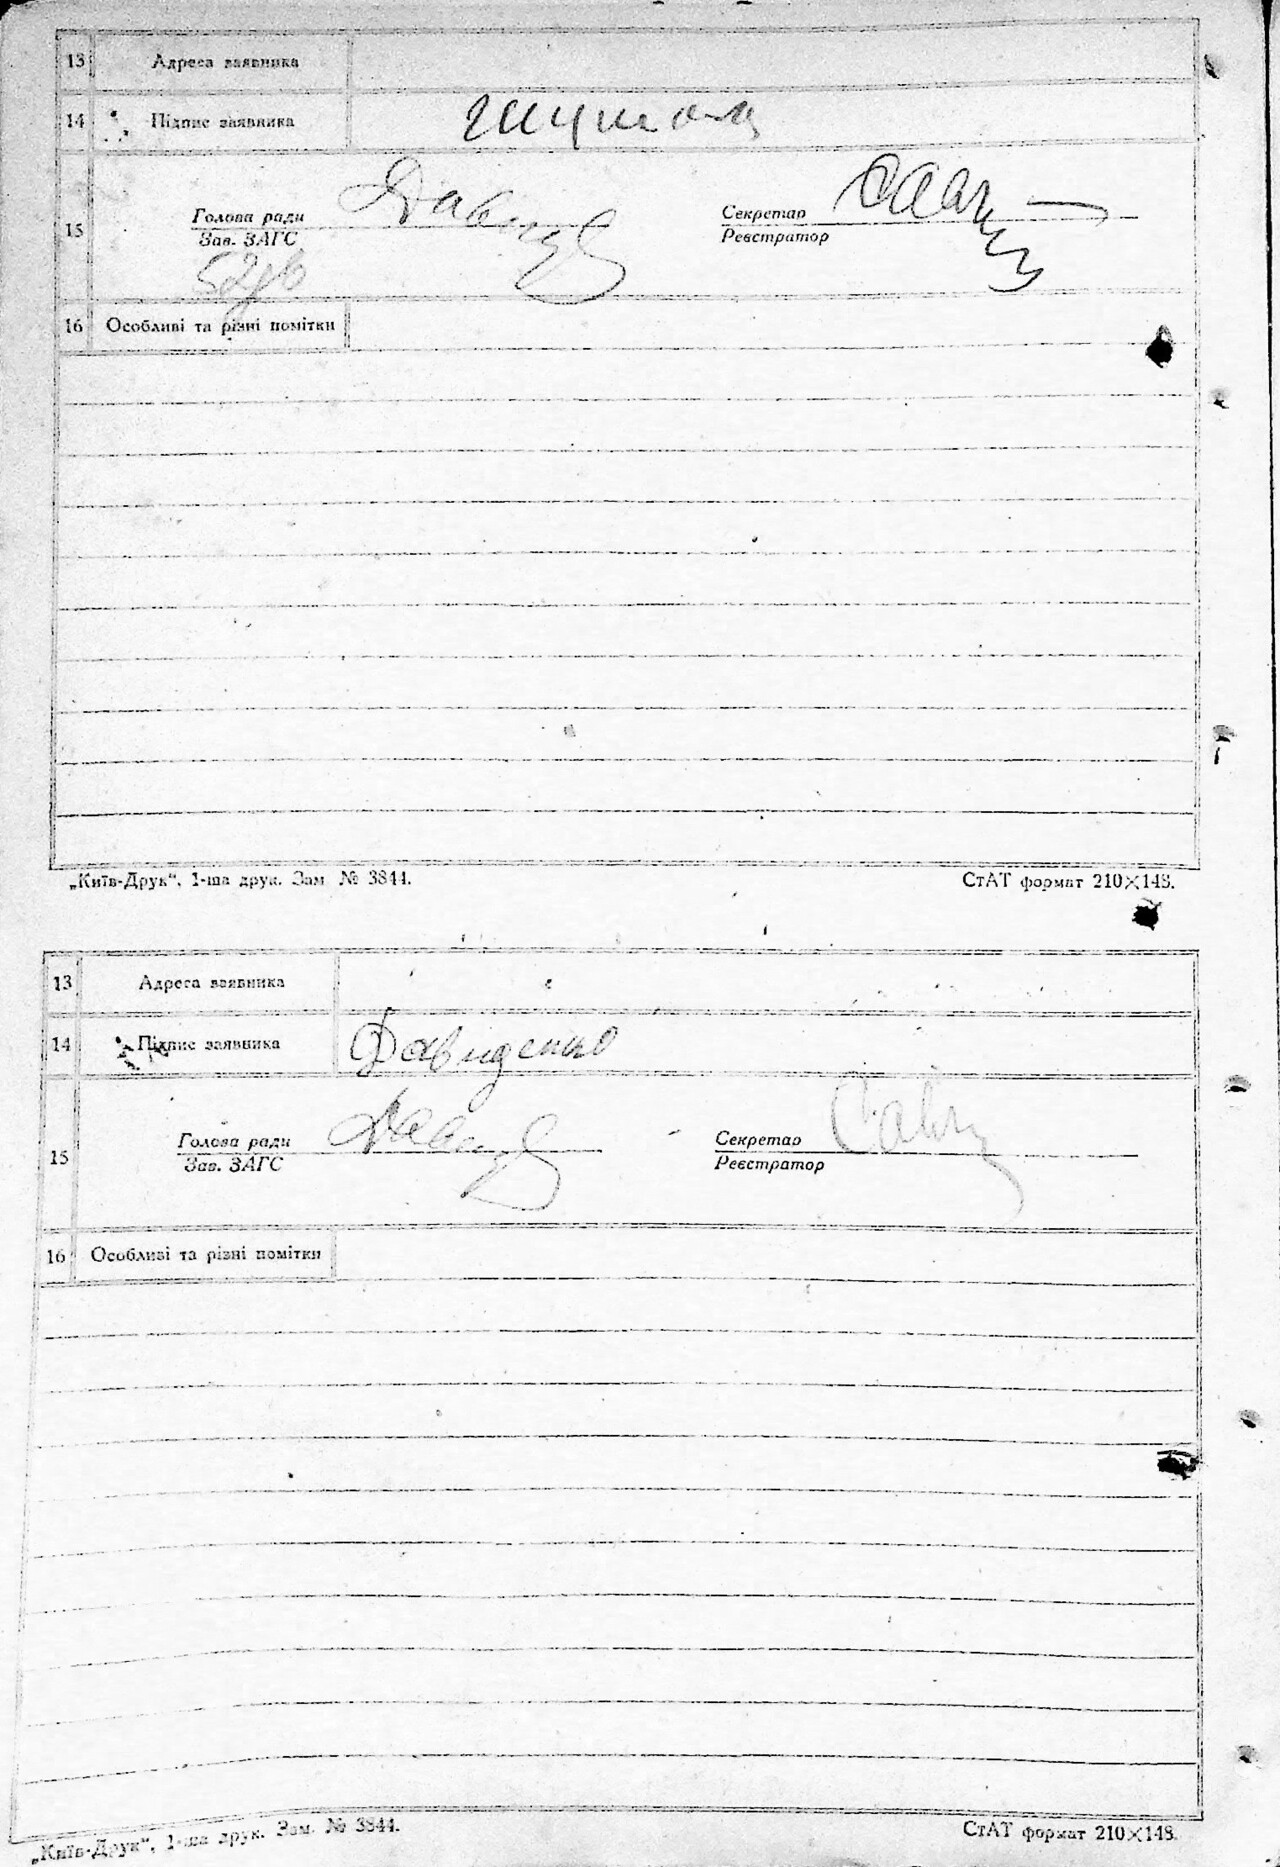 13 Адреса заявника
14 Підпис заявника
15 Голова ради Секретар
Зав. ЗАГС Реєстратор
16 Особливі та різні помітки
„Київ-Друк“, 1-ша друк. Зам № 3844. СтАТ формат 210×148.
13 Адреса заявника
14 Підпис заявника Давиденко
15 Голова ради Секретар
Зав. ЗАГС Реєстратор
16 Особливі та різні помітки
„Київ-Друк“, 1-ша друк. Зам. № 3844. СтАТ формат 210×148.